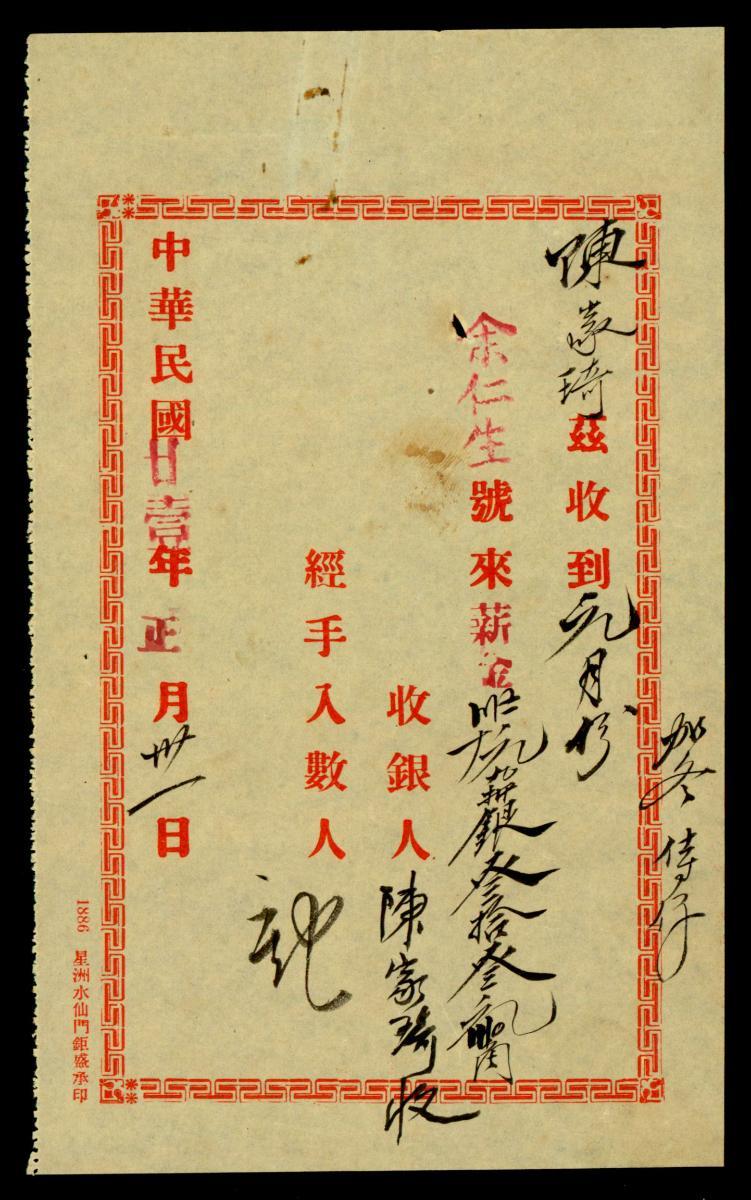 陳家琦茲收到元月份
余仁生號來薪金
薪銀叁拾叁元
收銀人陳家琦收
經手入數人
中華民國廿壹年正月卅一日
1886 星洲水仙門鉅盛承印